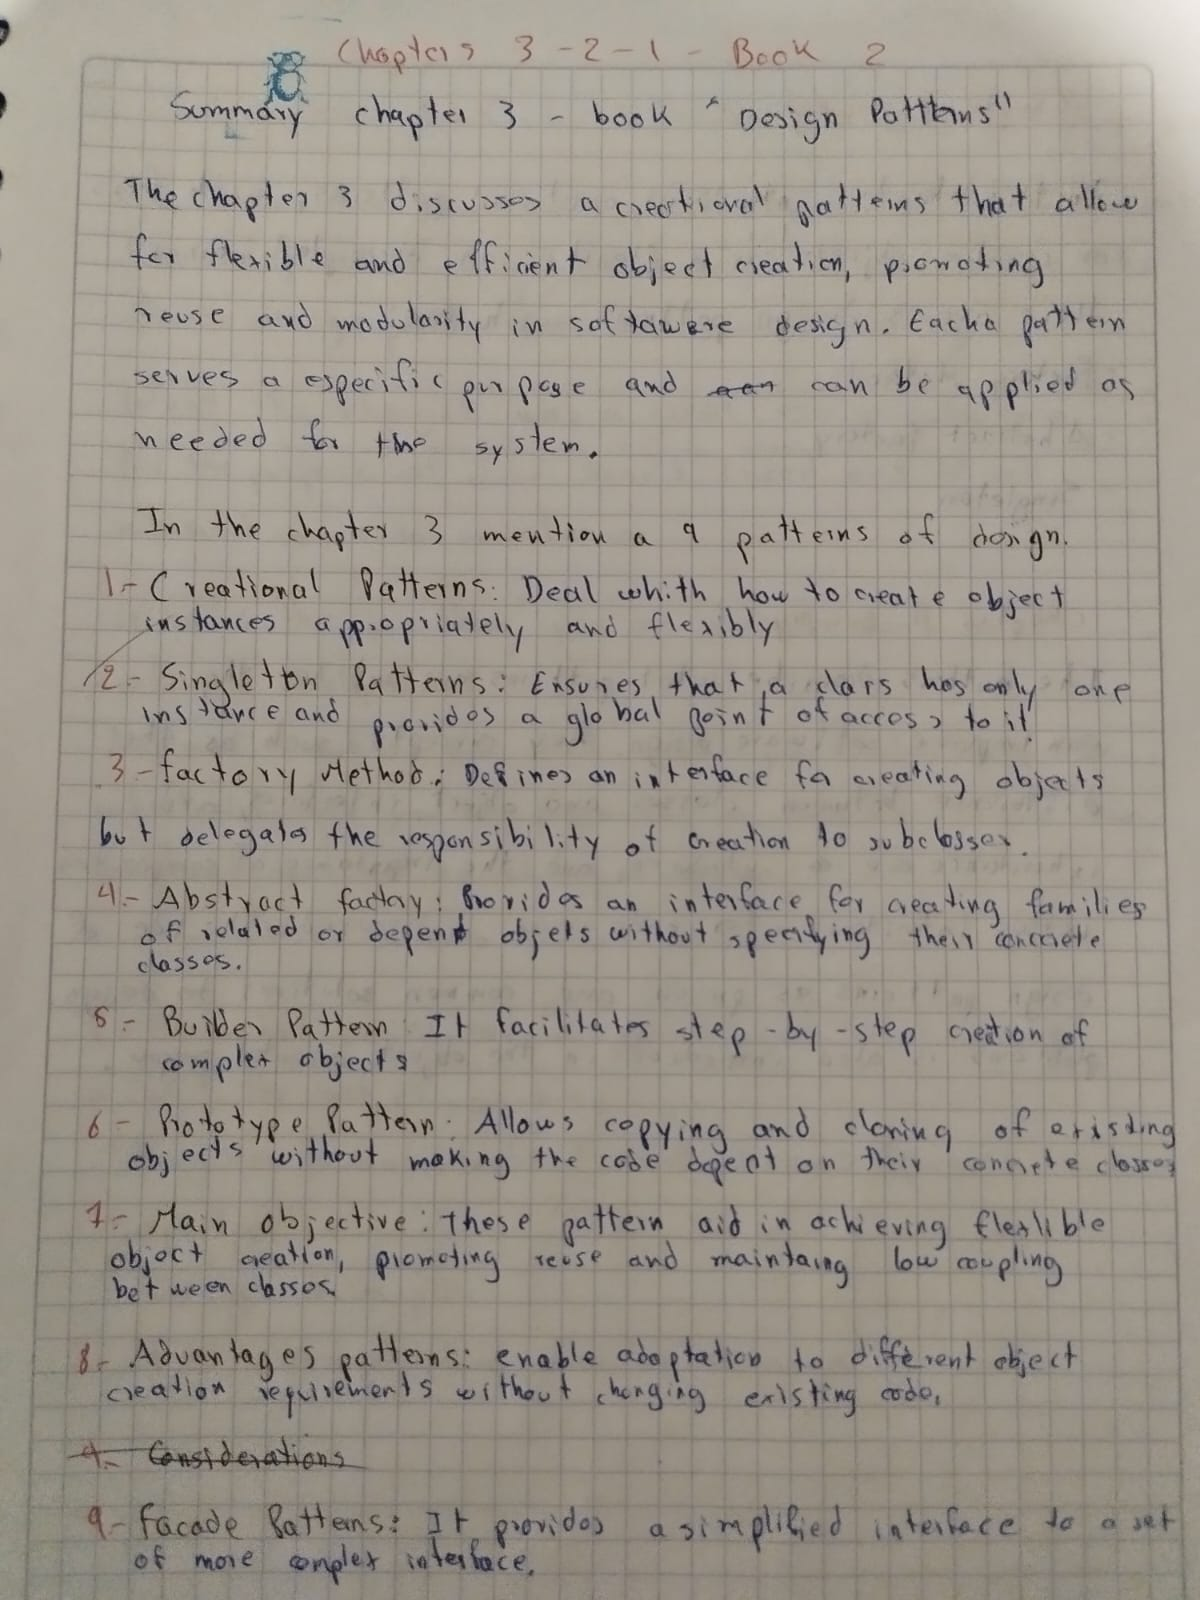 Chapters 3-2-1 - Book 2
Summary chapter 3 - book "Design Patterns"
The chapter 3 discusses a creational patterns that allow
for flexible and efficient object creation, promoting
reuse and modularity in softawere design. Eacha pattern
serves a especific purpose and can be applied as
needed for the system.
In the chapter 3 mention a 9 patterns of design.
1- Creational Patterns: Deal whith how to create object
instances appropriately and flexibly
2- Singleton Patterns: Ensures that a class has only one
instance and provides a global point of access to it
3- factory Method: Defines an interface for creating objects
but delegates the responsibility of creation to subclasses.
4- Abstract factory: Provides an interface for creating families
of related or depent objets without specifying their concrete
classes.
5- Builder Pattern It facilitates step-by-step creation of
complex objects
6- Prototype Pattern: Allows copying and cloning of existing
objects without making the code depent on their concrete classes
7- Main objective: these pattern aid in achieving flexlible
object creation, promoting reuse and maintaing low coupling
between classes.
8- Advantages patterns: enable adaptation to different object
creation requirements without changing existing code.
9- Considerations
9- Facade Patterns: It provides a simplified interface to a set
of more complex interface.